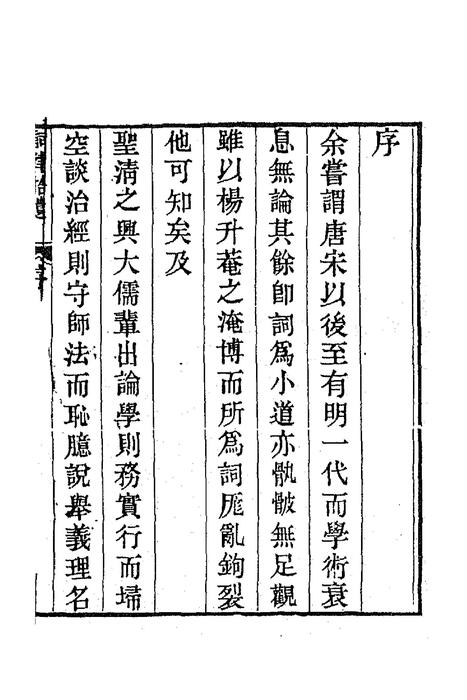 序
余嘗謂唐宋以後至有明一代而學術衰
息無論其餘卽詞爲小道亦骩骳無足觀
雖以楊升菴之淹博而所爲詞厖亂鉤裂
他可知矣及
聖淸之興大儒輩出論學則務實行而埽
空談治經則守師法而恥臆說舉義理名
詞律拾遺